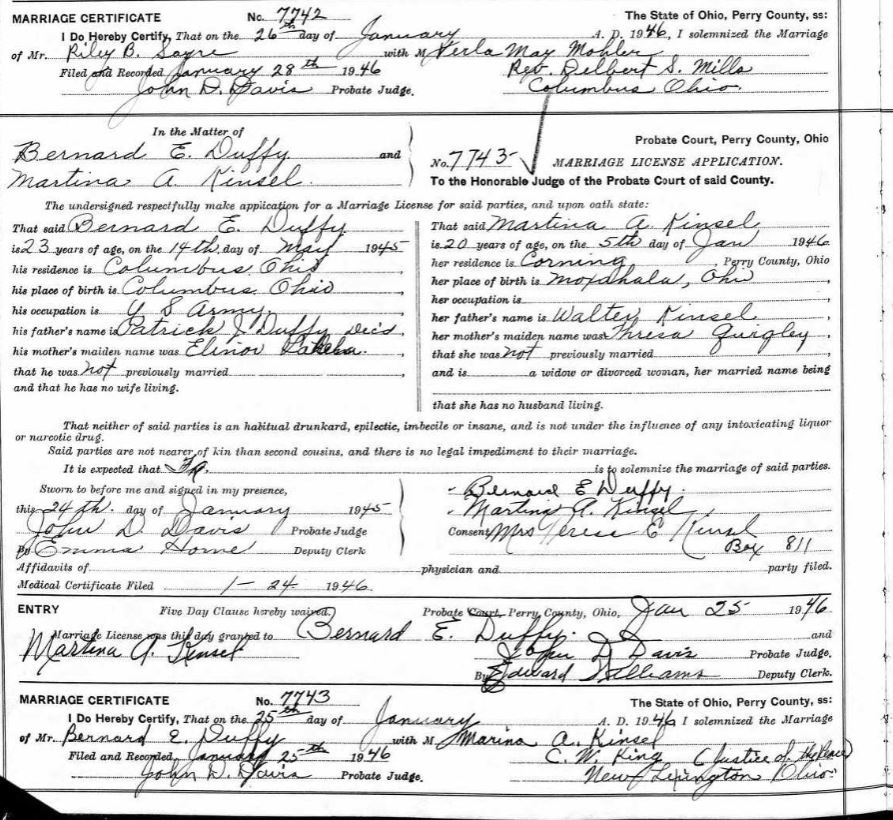 MARRIAGE CERTIFICATE No. 7742 The State of Ohio, Perry County, ss:
I Do Hereby Certify, That on the 26th day of January A. D. 1946, I solemnized the Marriage
of Mr. Riley B. Sayre with M Verla May Mohler
Filed and Recorded January 28th 1946 Rev. Delbert S. Mills
John D. Davis Probate Judge. Columbus Ohio.
In the Matter of
Bernard E. Duffy and
Martina A. Kinsel.
Probate Court, Perry County, Ohio
No. 7743 MARRIAGE LICENSE APPLICATION.
To the Honorable Judge of the Probate Court of said County.
The undersigned respectfully make application for a Marriage License for said parties, and upon oath state:
That said Bernard E. Duffy
is 23 years of age, on the 14th day of May 1945
his residence is Columbus Ohio
his place of birth is Columbus Ohio
his occupation is U S Army
his father's name is Patrick J Duffy Dec'd
his mother's maiden name was Elinor
that he was not previously married
and that he has no wife living.
That said Martina A. Kinsel
is 20 years of age, on the 5th day of Jan 1946
her residence is Corning, Perry County, Ohio
her place of birth is Moxahala, Ohio
her occupation is
her father's name is Walter Kinsel
her mother's maiden name was Thresa Quigley
that she was not previously married
and is a widow or divorced woman, her married name being
that she has no husband living.
That neither of said parties is an habitual drunkard, epilectic, imbecile or insane, and is not under the influence of any intoxicating liquor
or narcotic drug.
Said parties are not nearer of kin than second cousins, and there is no legal impediment to their marriage.
It is expected that is to solemnize the marriage of said parties.
Sworn to before me and signed in my presence,
this 24th. day of January 1945
John D. Davis Probate Judge
By Emma Horne Deputy Clerk
- Bernard E Duffy
- Martina A. Kinsel
Consent Mrs Teresa E Kinsel
Box 811
Affidavits of physician and party filed.
Medical Certificate Filed 1-24 1946.
ENTRY Five Day Clause hereby waived. Probate Court, Perry County, Ohio, Jan 25 1946
Marriage License was this day granted to Bernard E. Duffy and
Martina A. Kinsel John D Davis Probate Judge.
By Edward Williams Deputy Clerk.
MARRIAGE CERTIFICATE No. 7743 The State of Ohio, Perry County, ss:
I Do Hereby Certify, That on the 25th day of January A. D. 1946, I solemnized the Marriage
of Mr. Bernard E. Duffy with M Marina A. Kinsel
Filed and Recorded January 25th 1946 C. W. King (Justice of the Peace)
John D. Davis Probate Judge. New Lexington Ohio.